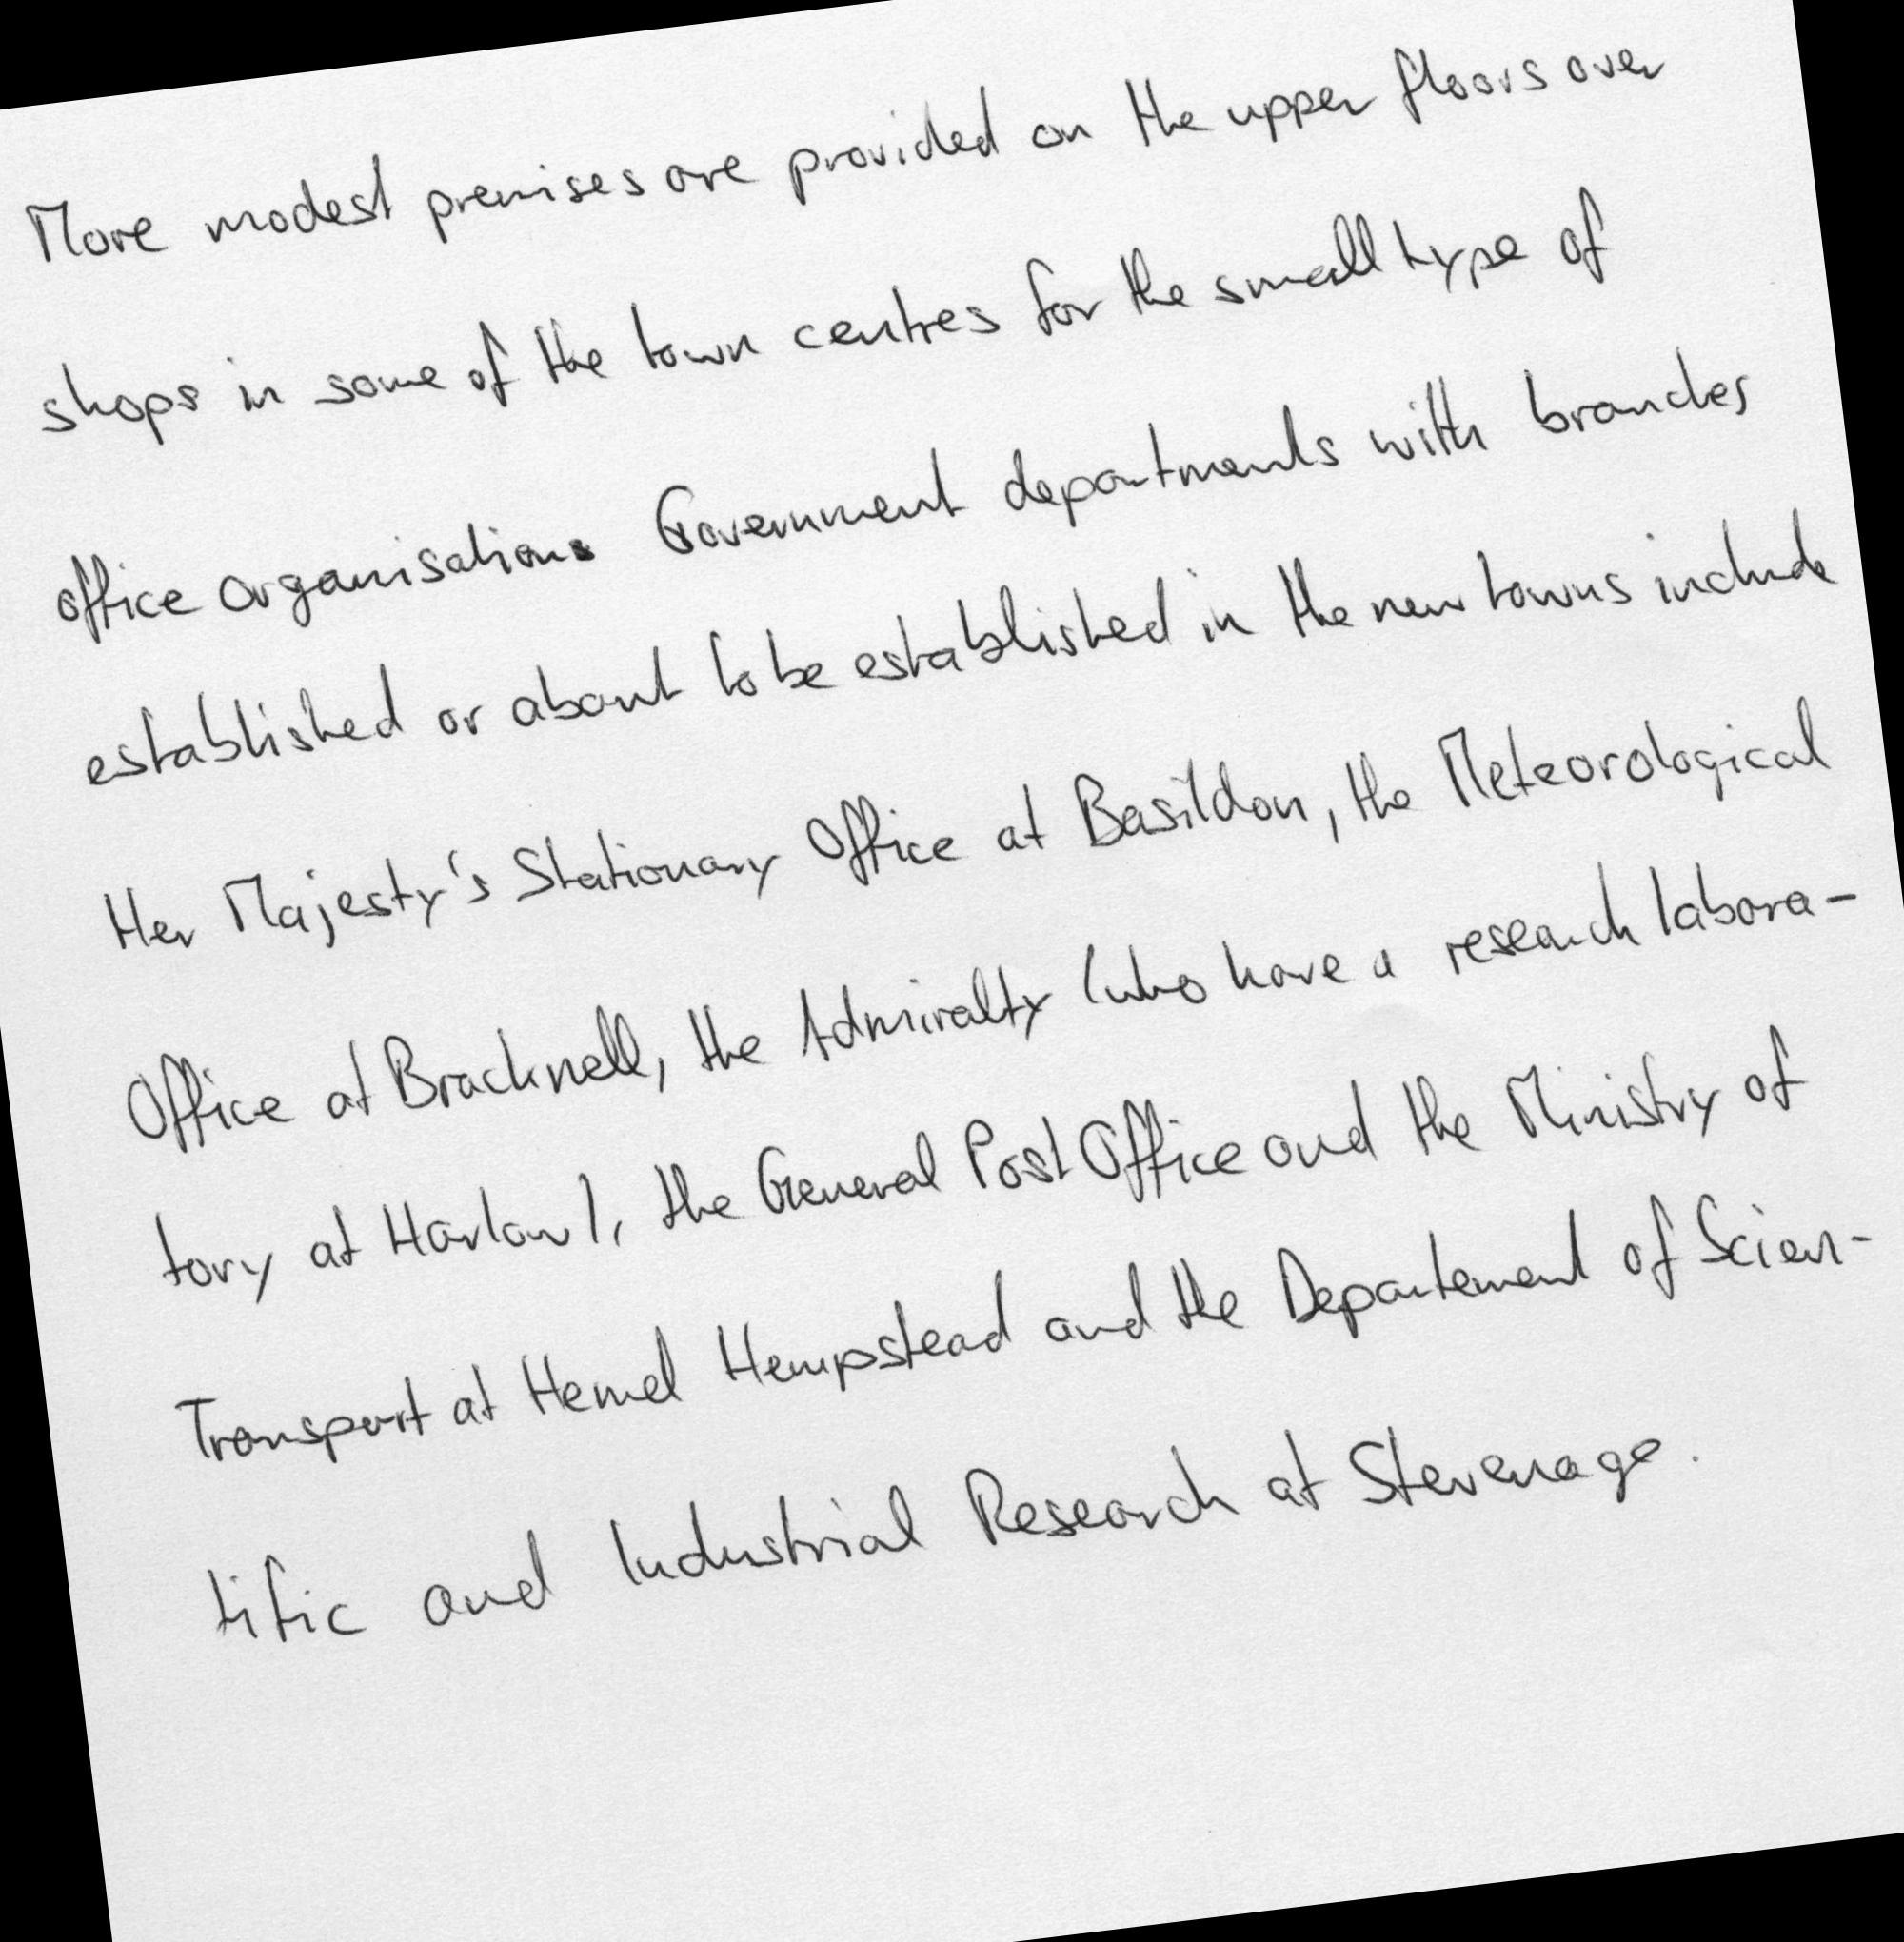 More modest premises are provided on the upper floors over
shops in some of the town centres for the small type of
office organisation. Government departments with branches
established or about to be established in the new towns include
Her Majesty's Stationary Office at Basildon, the Meteorological
Office at Bracknell, the Admiralty (who have a research labora-
tory at Harlow), the General Post Office and the Ministry of
Transport at Hemel Hempstead and the Departement of Scien-
tific and Industrial Research at Stevenage.